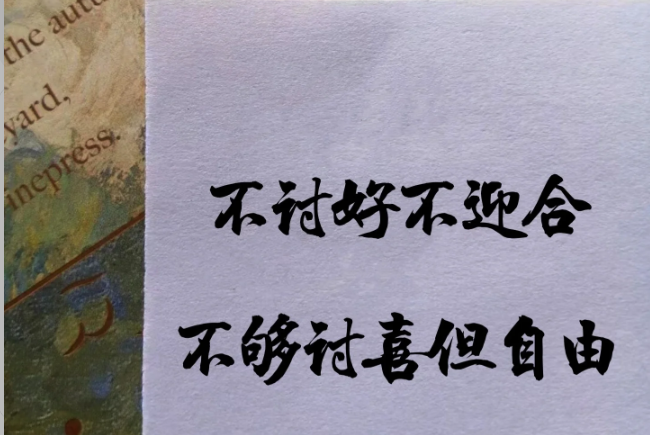 the auto
yard,
inepress.
不讨好不迎合
不够讨喜但自由